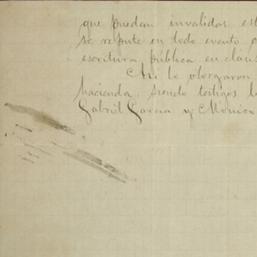 que puedan invalidar est
se repute en todo evento c
escritura pública en claus
Asi lo otorgaron
hacienda, siendo testigos l
Gabriel Garcia y Monico